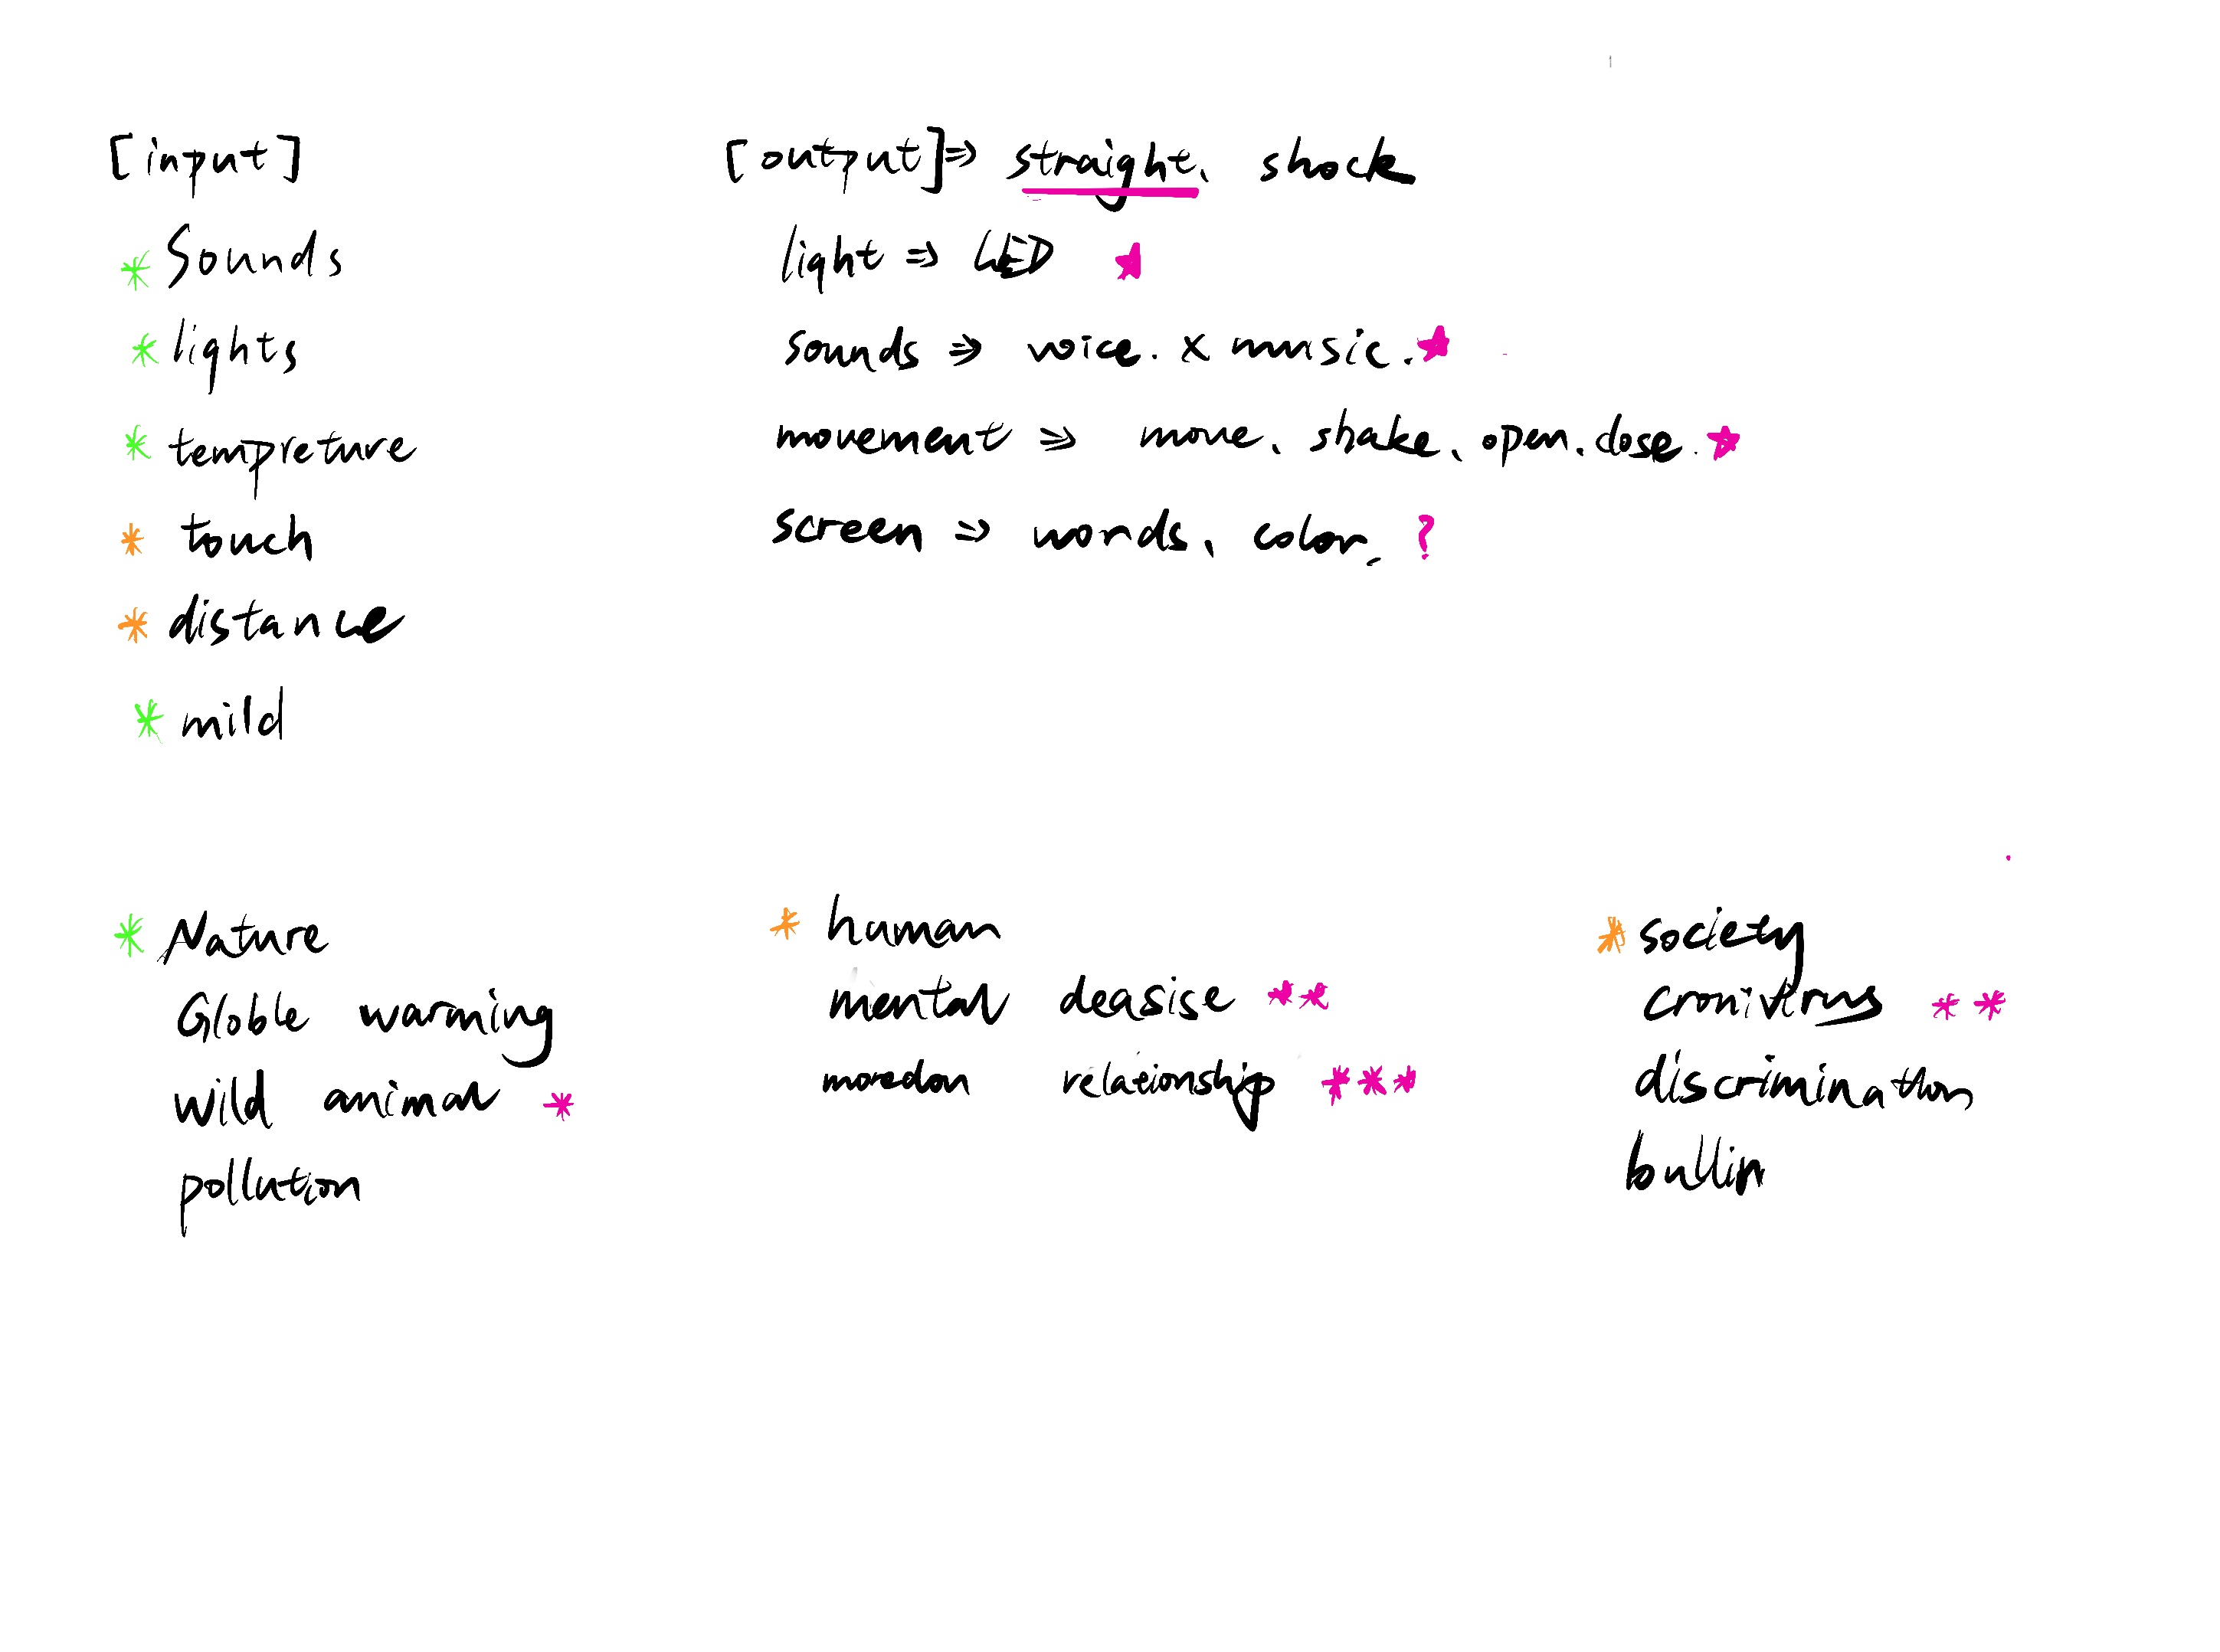 [input]
* Sounds
* lights
* tempreture
* touch
* distance
* mild
[output] ⇒ straight、 shock
light ⇒ LED ★
sounds ⇒ voice. x music. ★
movement ⇒ move、shake、open.close. ★
screen ⇒ words、color、?
* Nature
Globle warming
wild animal *
pollution
* human
mental deasise **
moredon relationship ***
* society
cronivirus **
discrimination
bullin